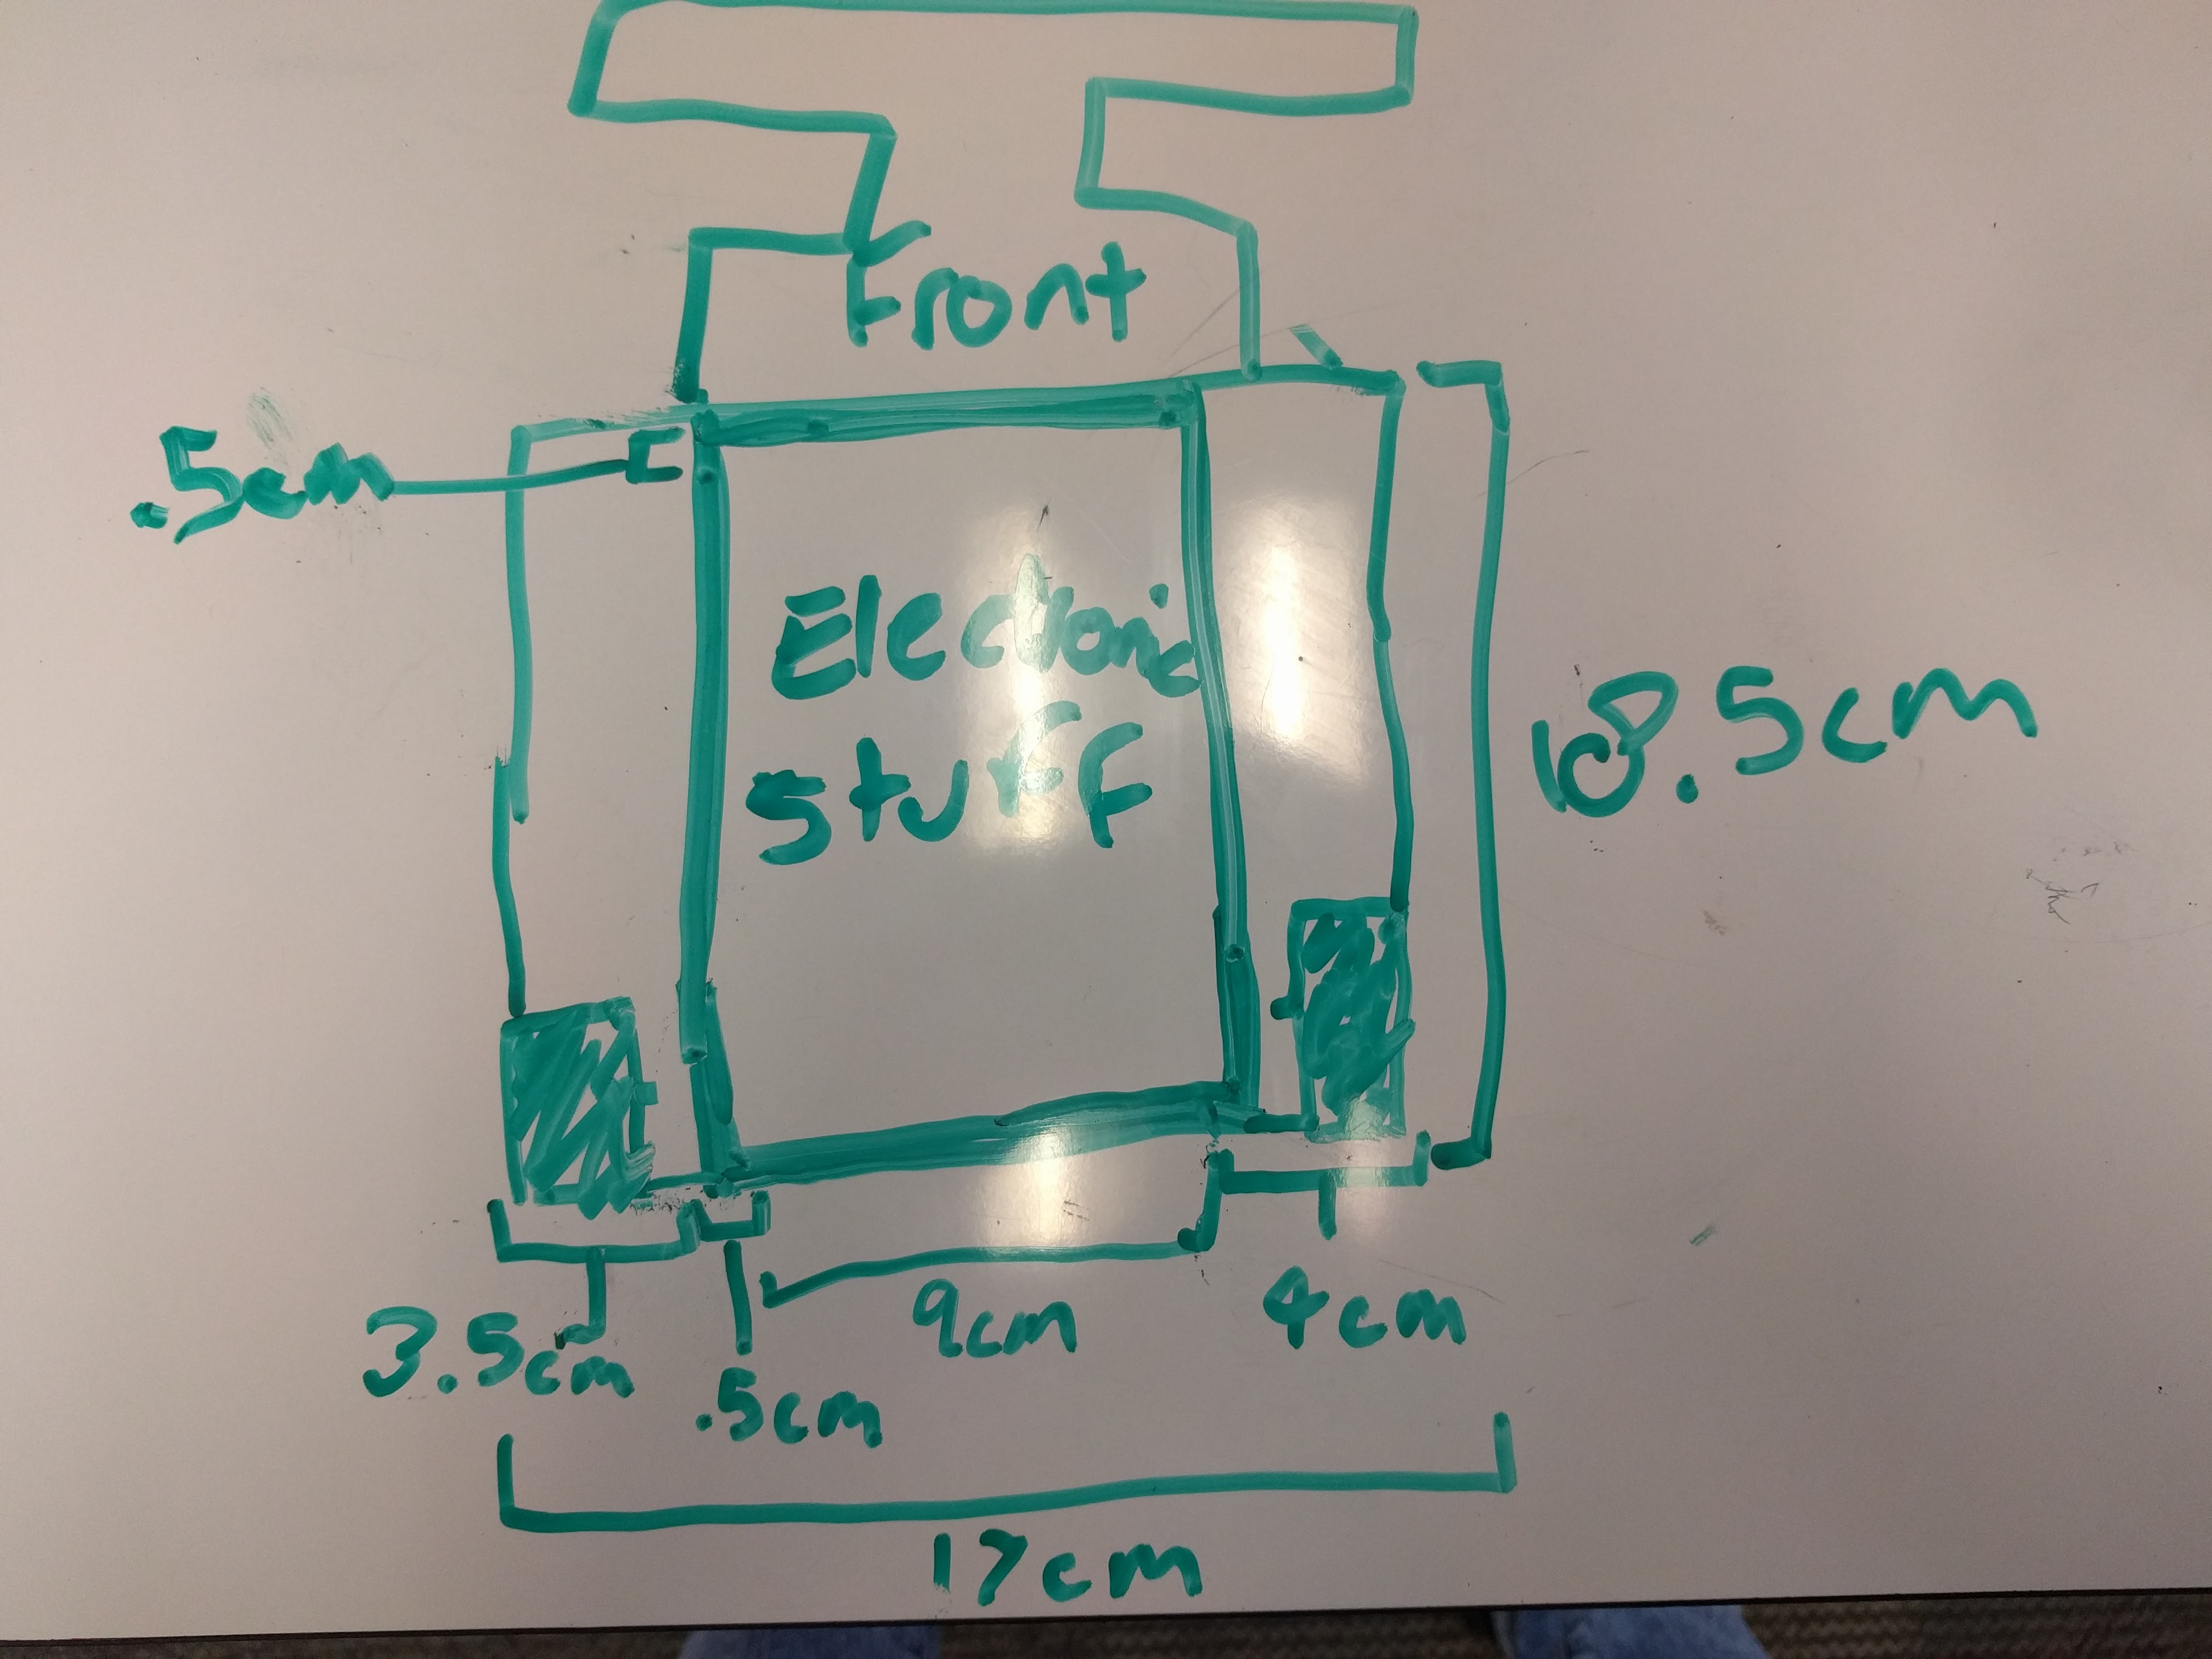 Front
.5cm
Electronic
Stuff
18.5cm
9cm
4cm
3.5cm
.5cm
17cm